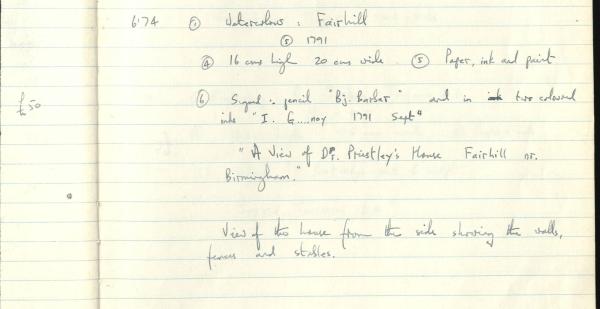 6'74 ① Watercolour : Fairhill
③ 1791
④ 16 cms high 20 cms wide ⑤ Paper, ink and paint
£50
⑥ Signed :- pencil "Bj. Barber" and in ink two coloured
inks "I. G....noy 1791 Sept"
"A View of Dr. Priestley's House Fairhill nr.
Birmingham."
View of the house from the side showing the walls,
fences and stables.